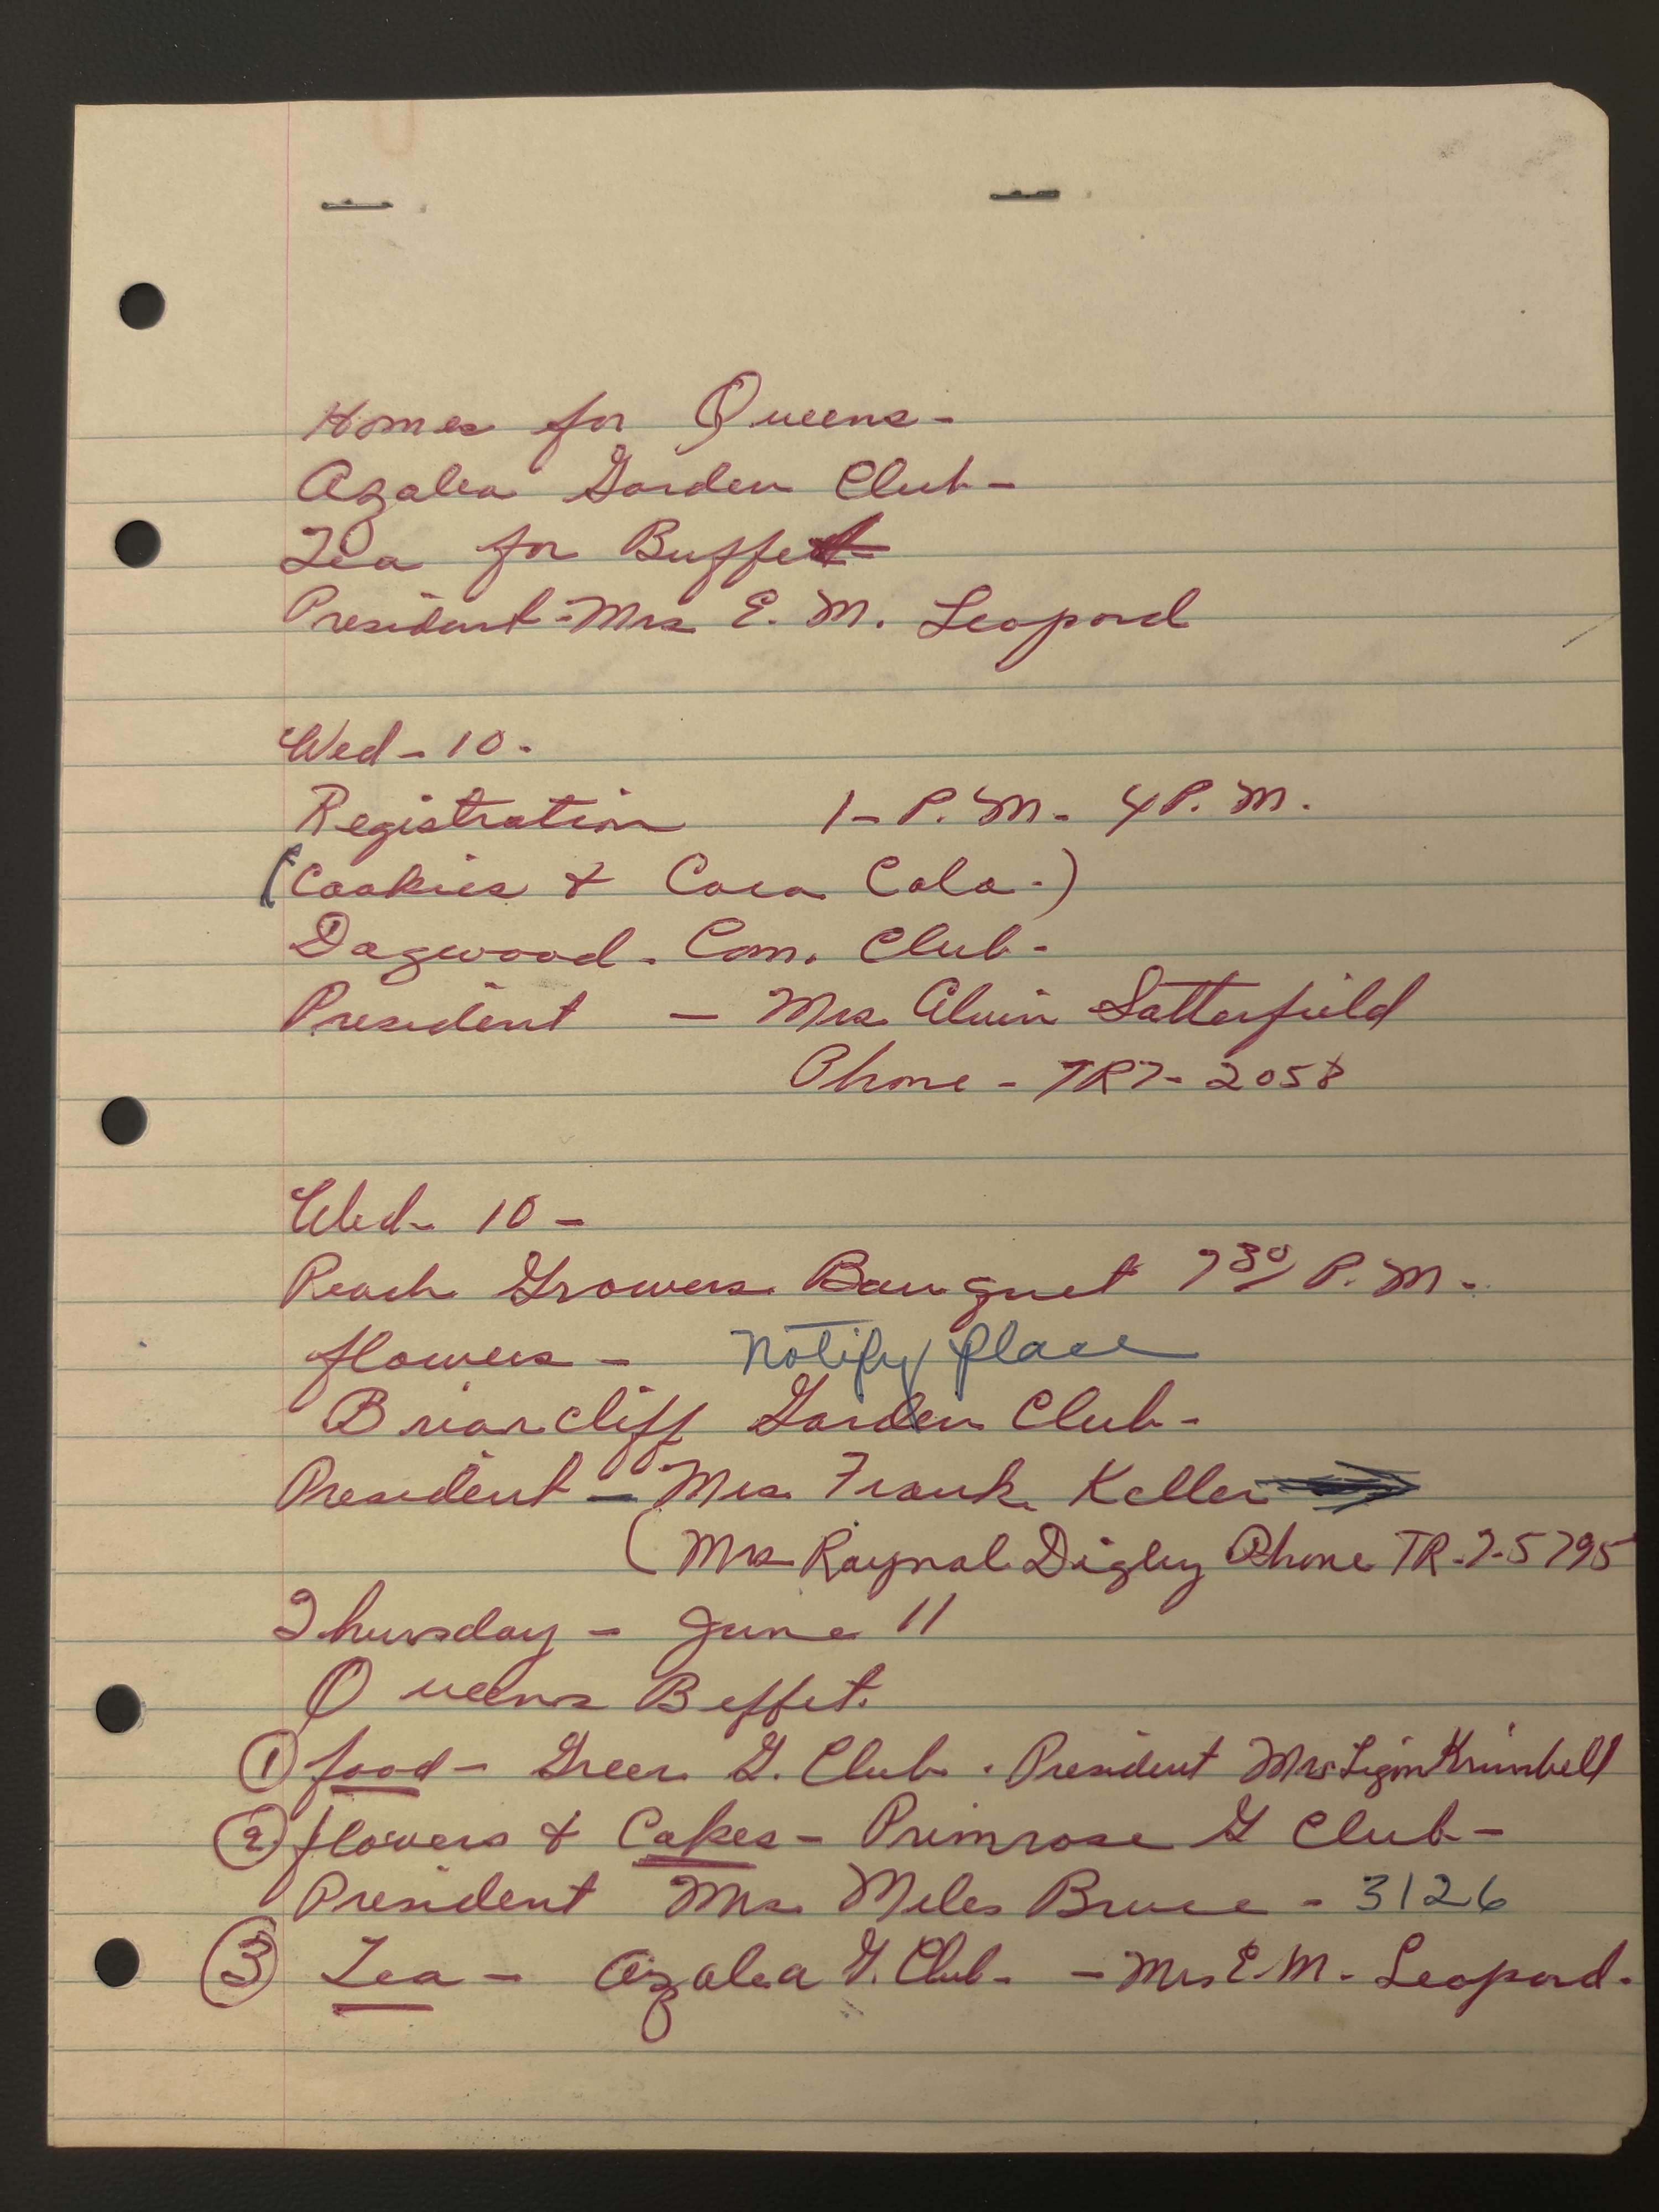 Homes for Queens -
Azalea Garden Club -
Tea for Buffet
President - Mrs E. M. Leopard
Wed - 10 -
Registration 1 - P. M. - 4 P. M.
(Cookies & Coca Cola -)
Dogwood - Com. Club -
President - Mrs Alvin Satterfield
Phone - TR7 - 2058
Wed - 10 -
Peach Growers Banquet 7 30/ P. M -
flowers - Notify place
Briarcliff Garden Club -
President - Mrs Frank Keller
(Mrs Raynal Digby Phone TR - 7 - 5795
Thursday - June 11
Queens Beffet.
① food - Greer G. Club - President Mrs
② flowers & Cakes - Primrose G Club -
President Mrs Miles Bruce - 3126
③ Tea - Azalea G. Club - - Mrs E. M. Leopard -